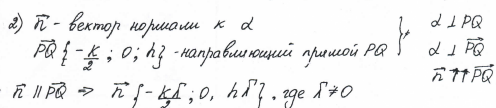 2) n⃗ - вектор нормали к α
PQ⃗ {-k/2; 0; h} - направляющий прямой PQ } ⇒
α ⊥ PQ
α ⊥ PQ⃗
n⃗ ⇈ PQ⃗
n⃗ ∥ PQ⃗ ⇒ n⃗ {-kλ/2; 0, hλ}, где λ ≠ 0